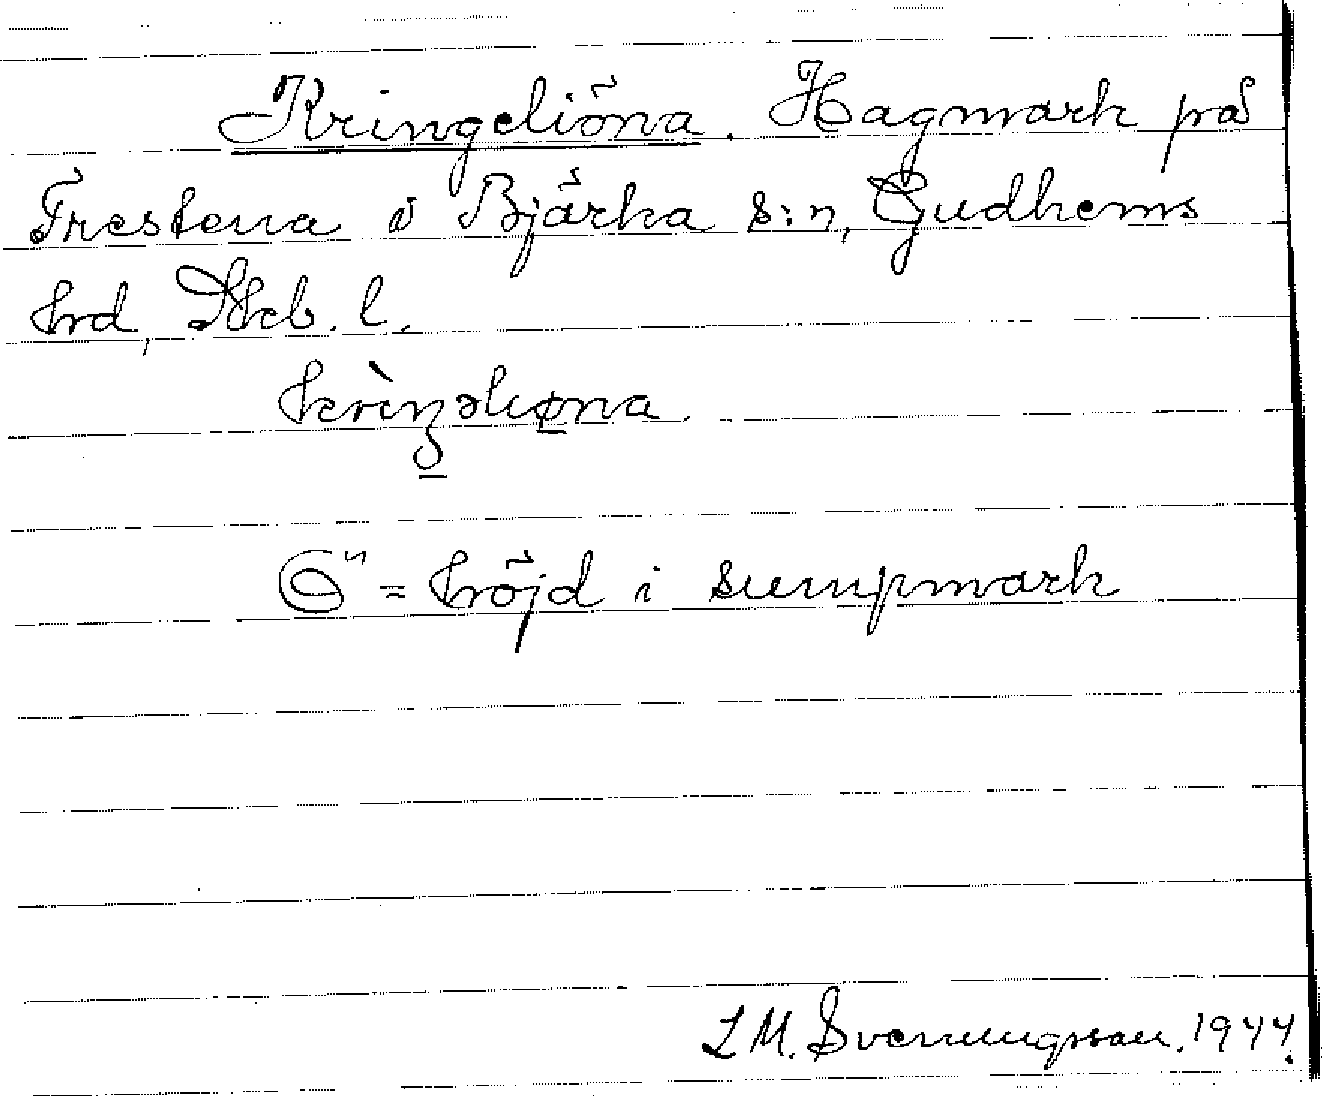 Kringeliöna. Hagmark på
Frestena i Bjärka s:n, Gudhems
hrd, Skb. l.
Ö" = höjd i sumpmark
L M. Svenningsson. 1944.